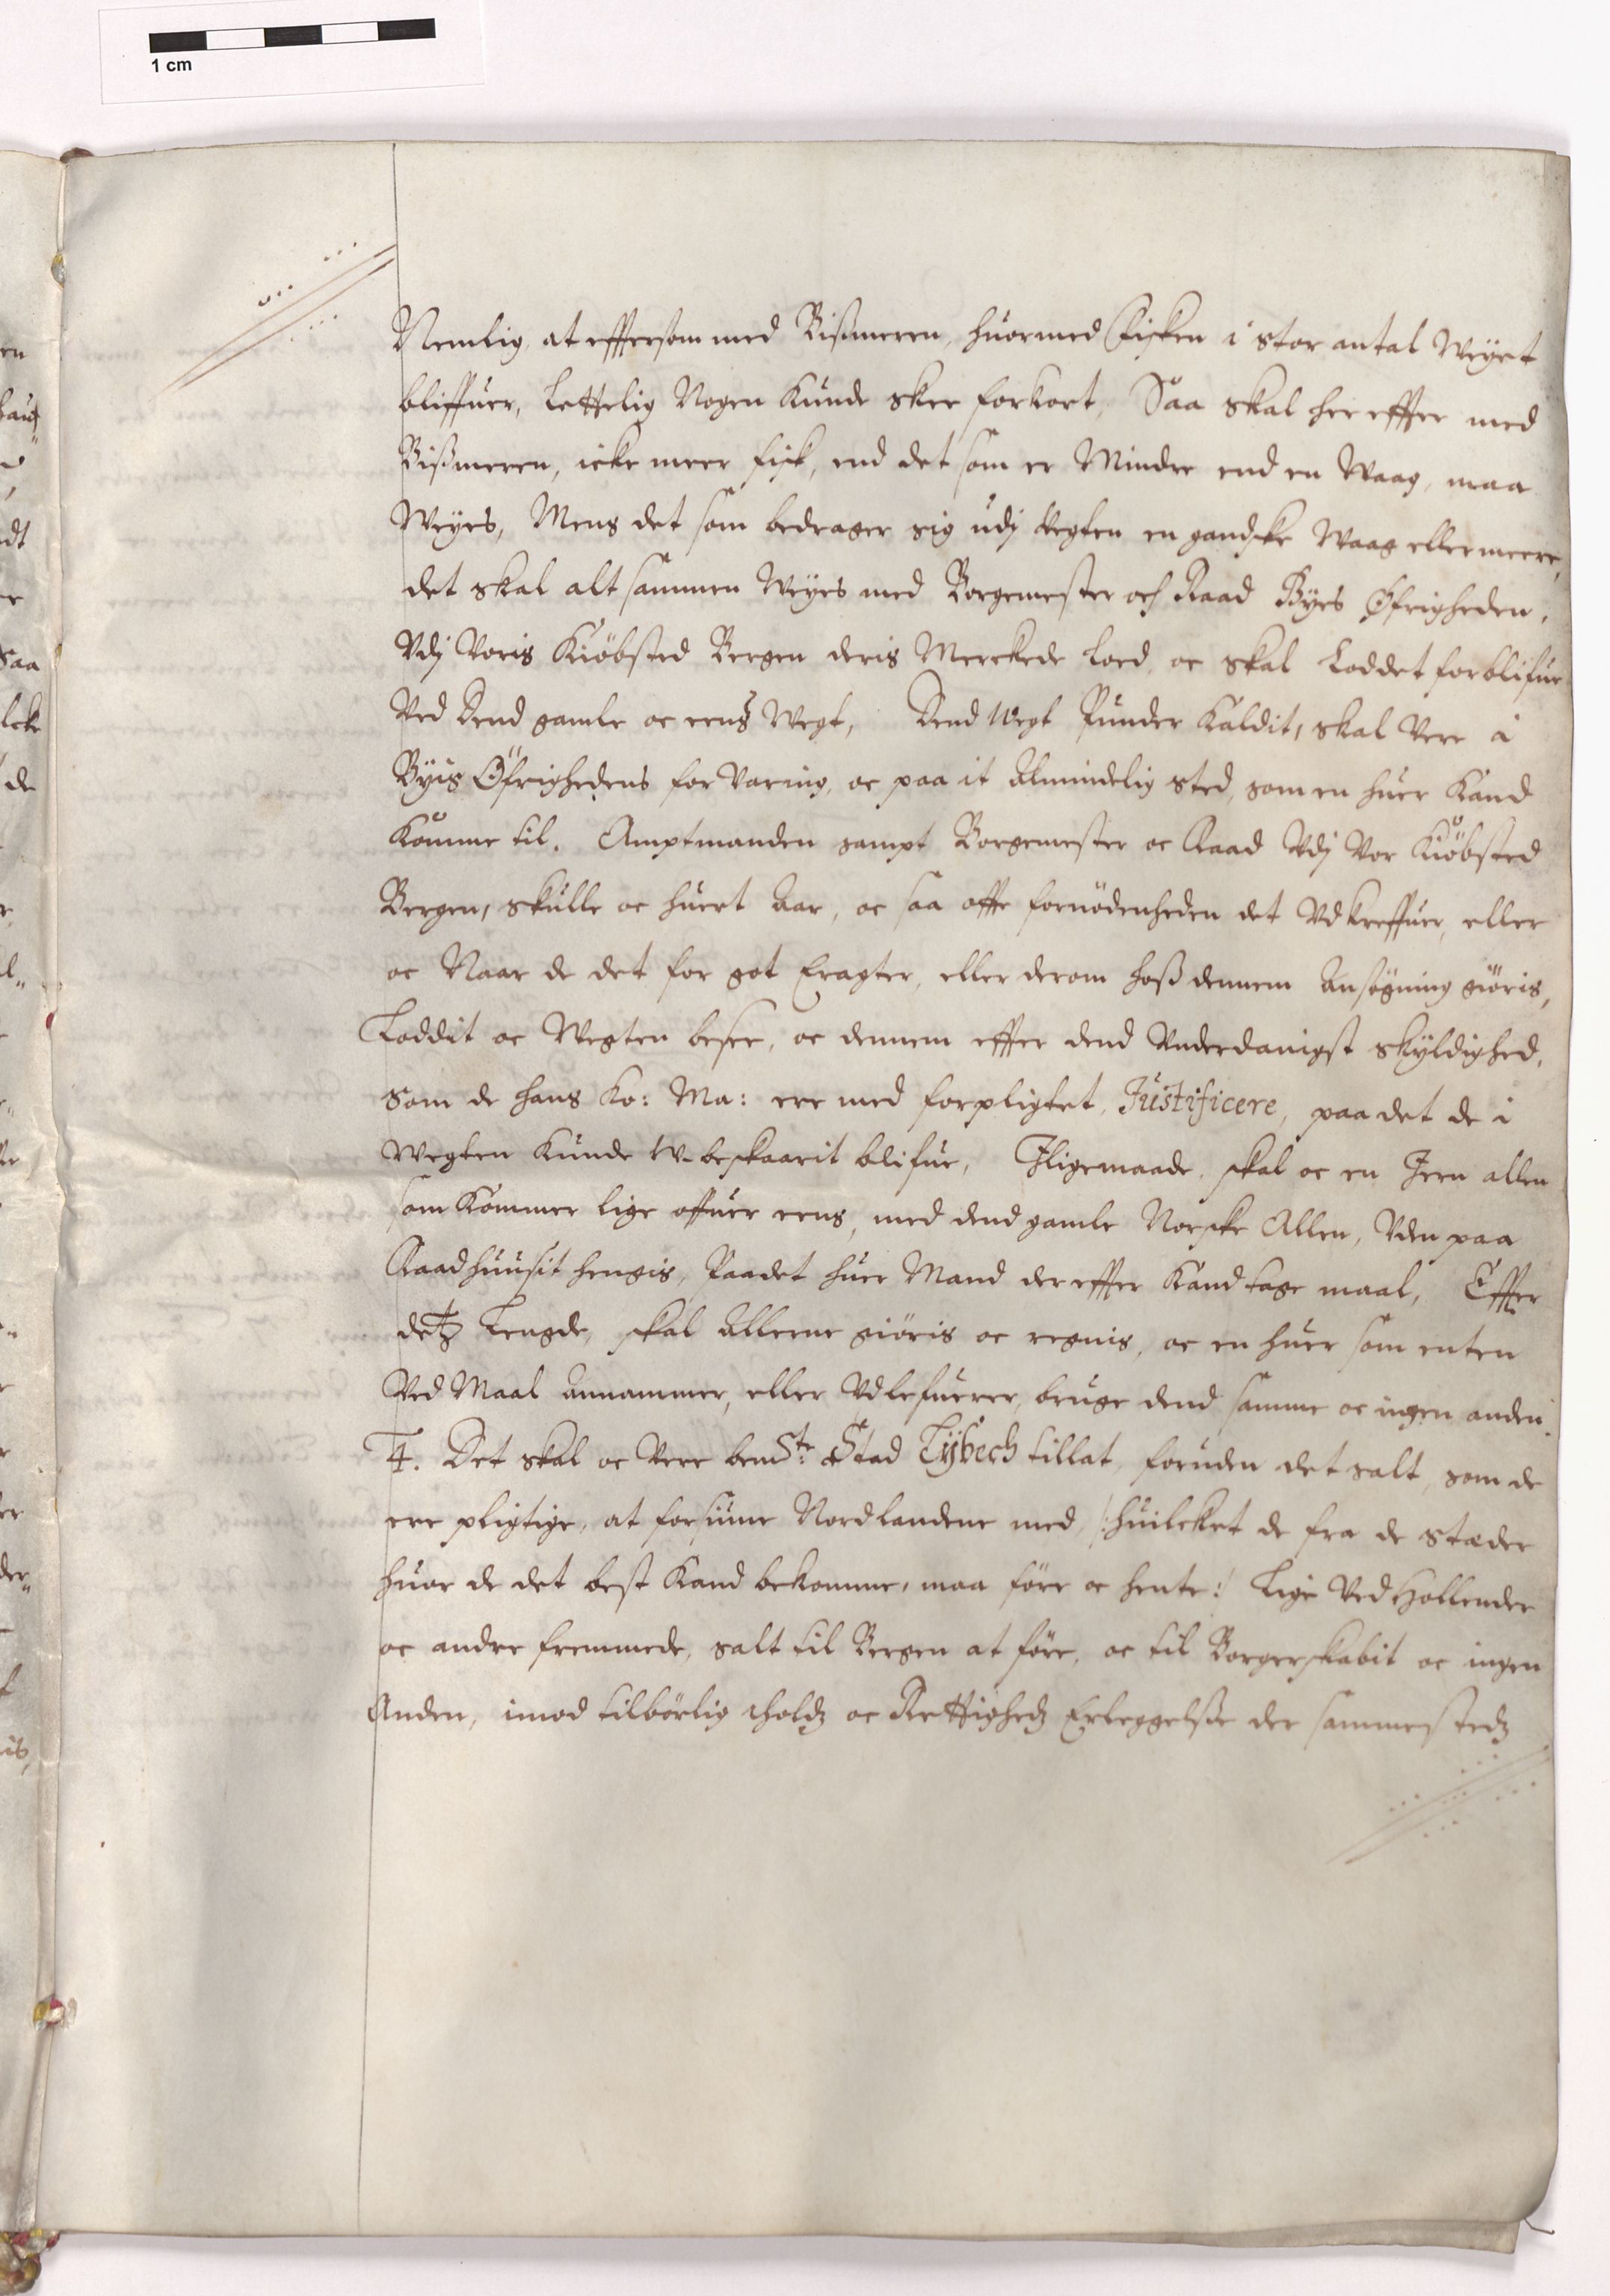 1 cm
Nemlig, at effterſom med Bißmeren, huormed Fisken i stor antal Weyet
bliffuer, Lettelig Nogen Kunde skee forkort, Saa skal her effter med
Bißmeren, icke meer fisk, end det som er Mindre end en Waag, maa
Weyes, Mens det som bedrager sig udj Vegten en gandske Waag eller meere,
det skal alt sammen Weyes med Borgemester och Raad Byes Øfrigheden,
Vdj Voris Kiöbsted Bergen deris Merckede Loed, oc skal Loddet forblifue
Ved Dend gamle oc eens Wegt, Dend Wegt Punder Kaldit, skal Vere i
Byis Öfrighedens forVaring, oc paa it Almindelig sted, som en huer Kand
Komme til. Amptmanden sampt Borgemester oc Raad Vdj Vor Kiöbsted
Bergen, skulle oc huert Aar, oc saa offte fornödenheden det Vdkreffuer, eller
oc Naar de det for got Eragter, eller derom hoß dennem Ansögning giöris,
Loddit oc Wegten besee, oc dennem effter dend Vnderdanigst skyldighed,
som de hans Ko: Ma: ere med forpligtet, Justificere, paa det de i
Wegten Kunde W-beskaarit blifue, Jligemaade skal oc en Jern allen
som Kommer lige offuer eens, med dend gamle Norske Allen, Vden paa
Raadhuusit hengis, Paa det huer Mand der effter Kand tage maal, Effter
detz Lengde, skal Allerne giöris oc regnis, oc en huer som enten
Ved Maal Annammer, eller Vdlefuerer, bruge dend samme oc ingen anden.
4. Det skal oc Vere bemSte: Stad Lybech tillat, foruden det salt, som de
ere pligtige, at forsiune Nordlandene med /:huilcket de fra de stæder
huor de det best Kand bekomme, maa före oc hente:/ Lige Ved Hollender
oc andre fremmede, salt til Bergen at före, oc til Borgerskabit oc ingen
Anden, imod tilbörlig tholdz oc Rettighedz Erleggelße der sammestedz